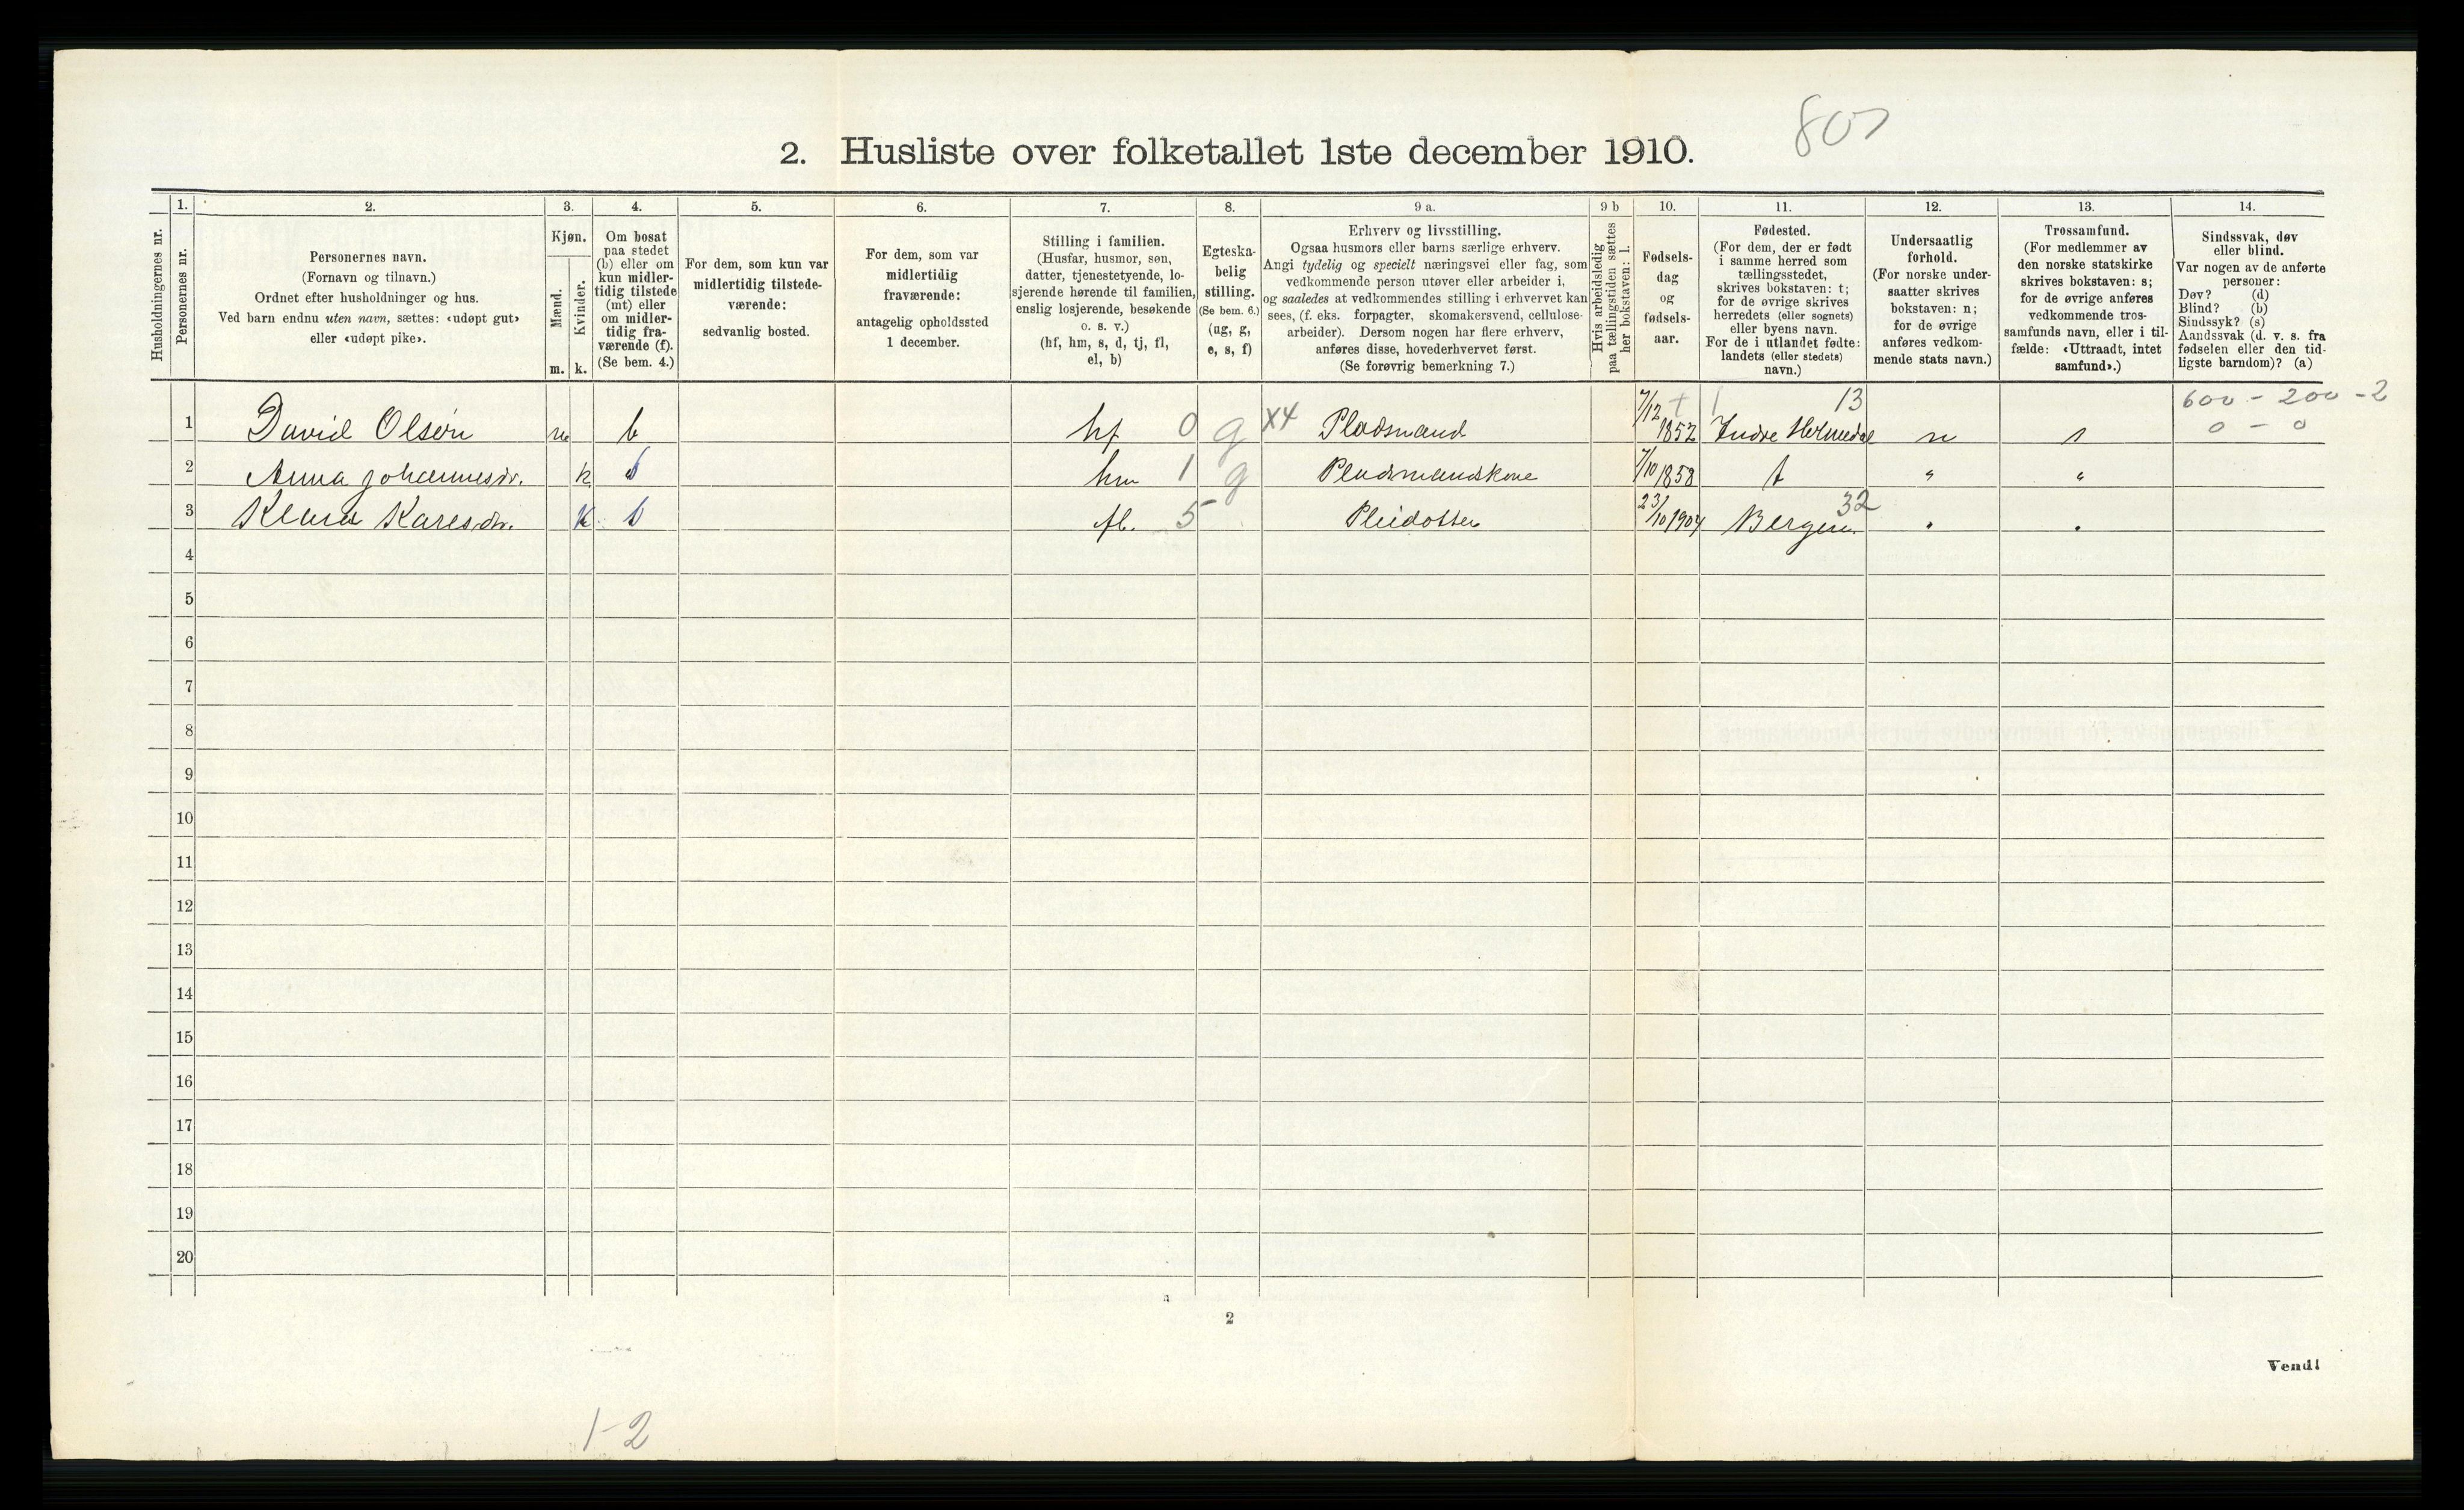 807
2. Husliste over folketallet 1ste december 1910.
Husholdningernes nr.
1.
Personernes nr.
2.
Personernes navn.
(Fornavn og tilnavn.)
Ordnet efter husholdninger og hus.
Ved barn endnu uten navn, sættes: «udøpt gut»
eller «udøpt pike».
3.
Kjøn.
Mænd.
Kvinder.
m. k.
4.
Om bosat
paa stedet
(b) eller om
kun midler-
tidig tilstede
(mt) eller
om midler-
tidig fra-
værende (f).
(Se bem. 4.)
5.
For dem, som kun var
midlertidig tilstede-
værende:
sedvanlig bosted.
6.
For dem, som var
midlertidig
fraværende:
antagelig opholdssted
1 december.
7.
Stilling i familien.
(Husfar, husmor, søn,
datter, tjenestetyende, lo-
sjerende hørende til familien,
enslig losjerende, besøkende
o. s. v.)
(hf, hm, s, d, tj, fl,
el, b)
8.
Egteska-
belig
stilling.
(Se bem. 6.)
(ug, g,
e, s, f)
9 a.
Erhverv og livsstilling.
Ogsaa husmors eller barns særlige erhverv.
Angi tydelig og specielt næringsvei eller fag, som
vedkommende person utøver eller arbeider i,
og saaledes at vedkommendes stilling i erhvervet kan
sees, (f. eks. forpagter, skomakersvend, cellulose-
arbeider). Dersom nogen har flere erhverv,
anføres disse, hovederhvervet først.
(Se forøvrig bemerkning 7.)
9 b
Hvis arbeidsledig
paa tællingstiden sættes
her bokstaven: l.
10.
Fødsels-
dag
og
fødsels-
aar.
11.
Fødested.
(For dem, der er født
i samme herred som
tællingsstedet,
skrives bokstaven: t;
for de øvrige skrives
herredets (eller sognets)
eller byens navn.
For de i utlandet fødte:
landets (eller stedets)
navn.)
12.
Undersaatlig
forhold.
(For norske under-
saatter skrives
bokstaven: n;
for de øvrige
anføres vedkom-
mende stats navn.)
13.
Trossamfund.
(For medlemmer av
den norske statskirke
skrives bokstaven: s;
for de øvrige anføres
vedkommende tros-
samfunds navn, eller i til-
fælde: «Uttraadt, intet
samfund».)
14.
Sindssvak, døv
eller blind.
Var nogen av de anførte
personer:
Døv? (d)
Blind? (b)
Sindssyk? (s)
Aandssvak (d. v. s. fra
fødselen eller den tid-
ligste barndom)? (a)
13 600 - 200 - 2
1 David Olsen m b hf 0 g X4 Pladsmand 7/12 1852 Indre Holmedal n s 0 - 0
2 Anna Johannesdr. k b hm 1 g Pladsmandskone 7/10 1858 t " "
3 Klara Karlsdr. k b fl. 5 Pleidotter 23/10 1904 Bergen 32 " "
4
5
6
7
8
9
10
11
12
13
14
15
16
17
18
19
20
2
Vend!
1-2